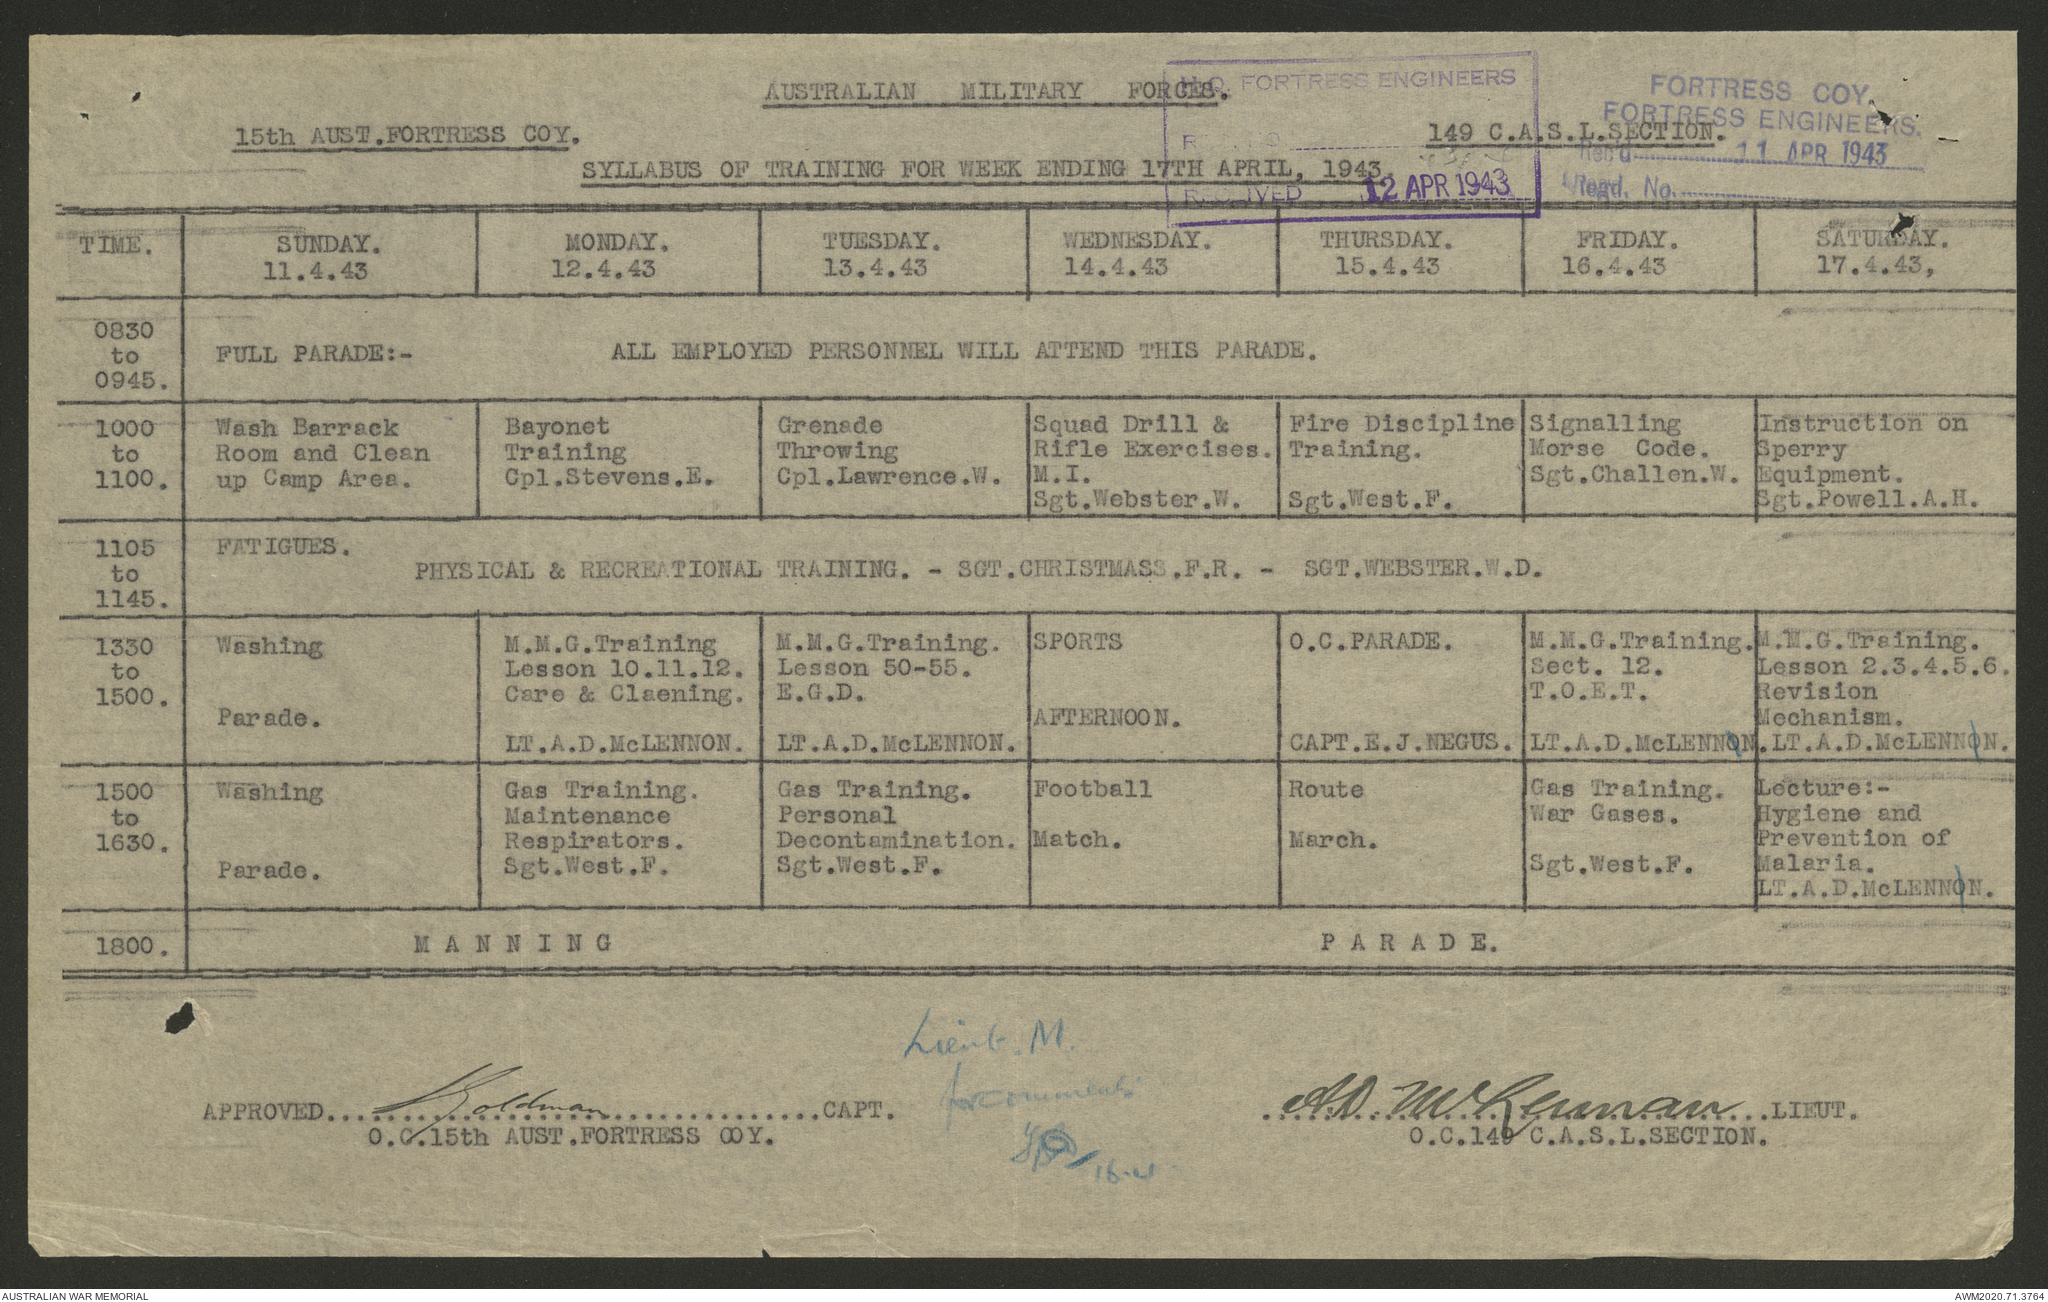 AUSTRALIAN MILITARY FORCES.
H.Q. FORTRESS ENGINEERS
RECEIVED 12 APR 1943
FORTRESS COY.
FORTRESS ENGINEERS.
Rec'd 11 APR 1943
Regd. No.
15th AUST.FORTRESS COY.
149 C.A.S.L.SECTION.
SYLLABUS OF TRAINING FOR WEEK ENDING 17TH APRIL, 1943.
TIME. SUNDAY. MONDAY. TUESDAY. WEDNESDAY. THURSDAY. FRIDAY. SATURDAY.
11.4.43 12.4.43 13.4.43 14.4.43 15.4.43 16.4.43 17.4.43,
0830
to
0945.
FULL PARADE:- ALL EMPLOYED PERSONNEL WILL ATTEND THIS PARADE.
1000
to
1100.
Wash Barrack
Room and Clean
up Camp Area.
Bayonet
Training
Cpl.Stevens.E.
Grenade
Throwing
Cpl.Lawrence.W.
Squad Drill &
Rifle Exercises.
M.I.
Sgt.Webster.W.
Fire Discipline
Training.
Sgt.West.F.
Signalling
Morse Code.
Sgt.Challen.W.
Instruction on
Sperry
Equipment.
Sgt.Powell.A.H.
1105
to
1145.
FATIGUES.
PHYSICAL & RECREATIONAL TRAINING. - SGT.CHRISTMASS.F.R. - SGT.WEBSTER.W.D.
1330
to
1500.
Washing
Parade.
M.M.G.Training
Lesson 10.11.12.
Care & Claening.
LT.A.D.McLENNON.
M.M.G.Training.
Lesson 50-55.
E.G.D.
LT.A.D.McLENNON.
SPORTS
AFTERNOON.
O.C.PARADE.
CAPT.E.J.NEGUS.
M.M.G.Training.
Sect. 12.
T.O.E.T.
LT.A.D.McLENNON.
M.M.G.Training.
Lesson 2.3.4.5.6.
Revision
Mechanism.
LT.A.D.McLENNON.
1500
to
1630.
Washing
Parade.
Gas Training.
Maintenance
Respirators.
Sgt.West.F.
Gas Training.
Personal
Decontamination.
Sgt.West.F.
Football
Match.
Route
March.
Gas Training.
War Gases.
Sgt.West.F.
Lecture:-
Hygiene and
Prevention of
Malaria.
LT.A.D.McLENNON.
1800. M A N N I N G P A R A D E.
Lieut. M.
for comments
16-4
APPROVED..............................CAPT.
O.C.15th AUST.FORTRESS COY.
AD McLennan LIEUT.
O.C.149 C.A.S.L.SECTION.
AUSTRALIAN WAR MEMORIAL
AWM2020.71.3764